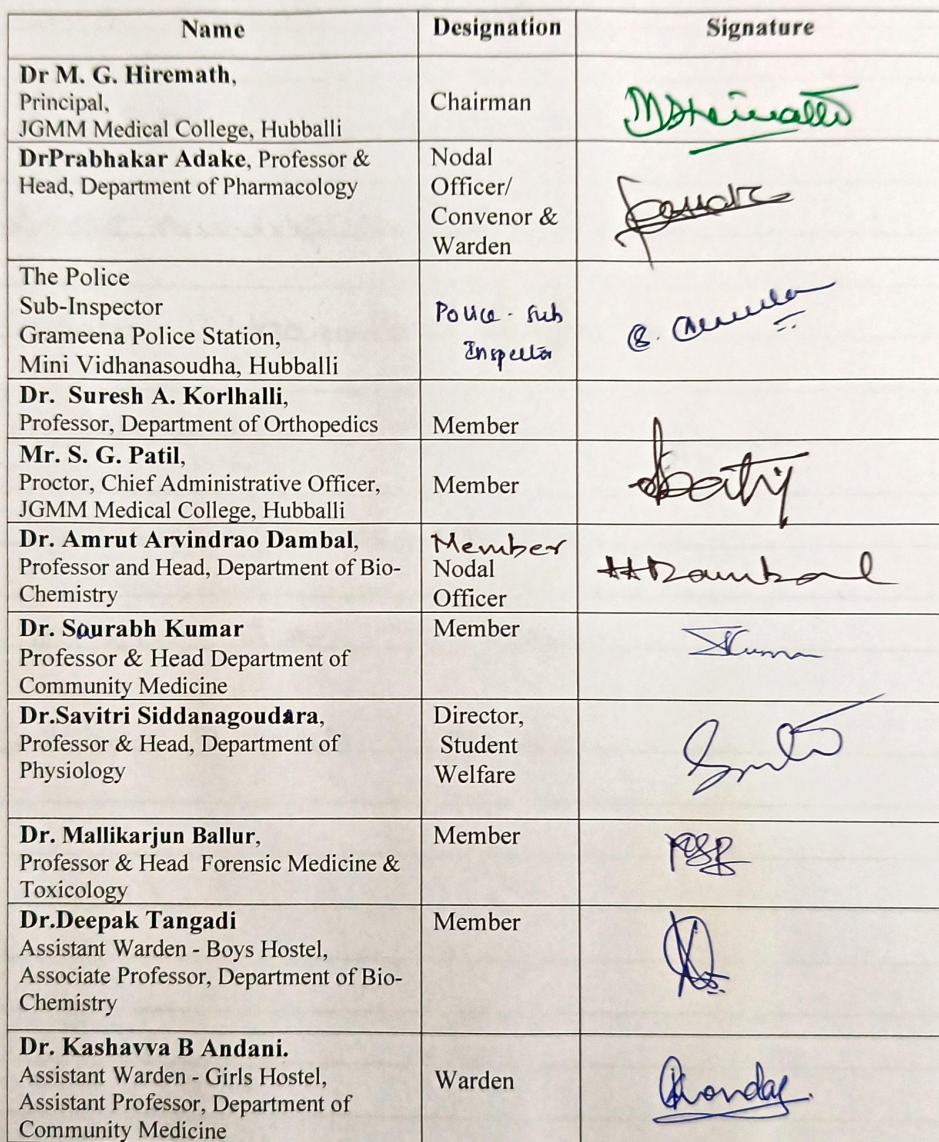 Name Designation Signature
Dr M. G. Hiremath,
Principal,
JGMM Medical College, Hubballi
Chairman
DrPrabhakar Adake, Professor &
Head, Department of Pharmacology
Nodal
Officer/
Convenor &
Warden
The Police
Sub-Inspector
Grameena Police Station,
Mini Vidhanasoudha, Hubballi
Police - Sub
Inspector
Dr. Suresh A. Korlhalli,
Professor, Department of Orthopedics
Member
Mr. S. G. Patil,
Proctor, Chief Administrative Officer,
JGMM Medical College, Hubballi
Member
Dr. Amrut Arvindrao Dambal,
Professor and Head, Department of Bio-
Chemistry
Member
Nodal
Officer
AADambal
Dr. Saurabh Kumar
Professor & Head Department of
Community Medicine
Member
SKumar
Dr.Savitri Siddanagoudara,
Professor & Head, Department of
Physiology
Director,
Student
Welfare
Dr. Mallikarjun Ballur,
Professor & Head Forensic Medicine &
Toxicology
Member
Dr.Deepak Tangadi
Assistant Warden - Boys Hostel,
Associate Professor, Department of Bio-
Chemistry
Member
Dr. Kashavva B Andani.
Assistant Warden - Girls Hostel,
Assistant Professor, Department of
Community Medicine
Warden